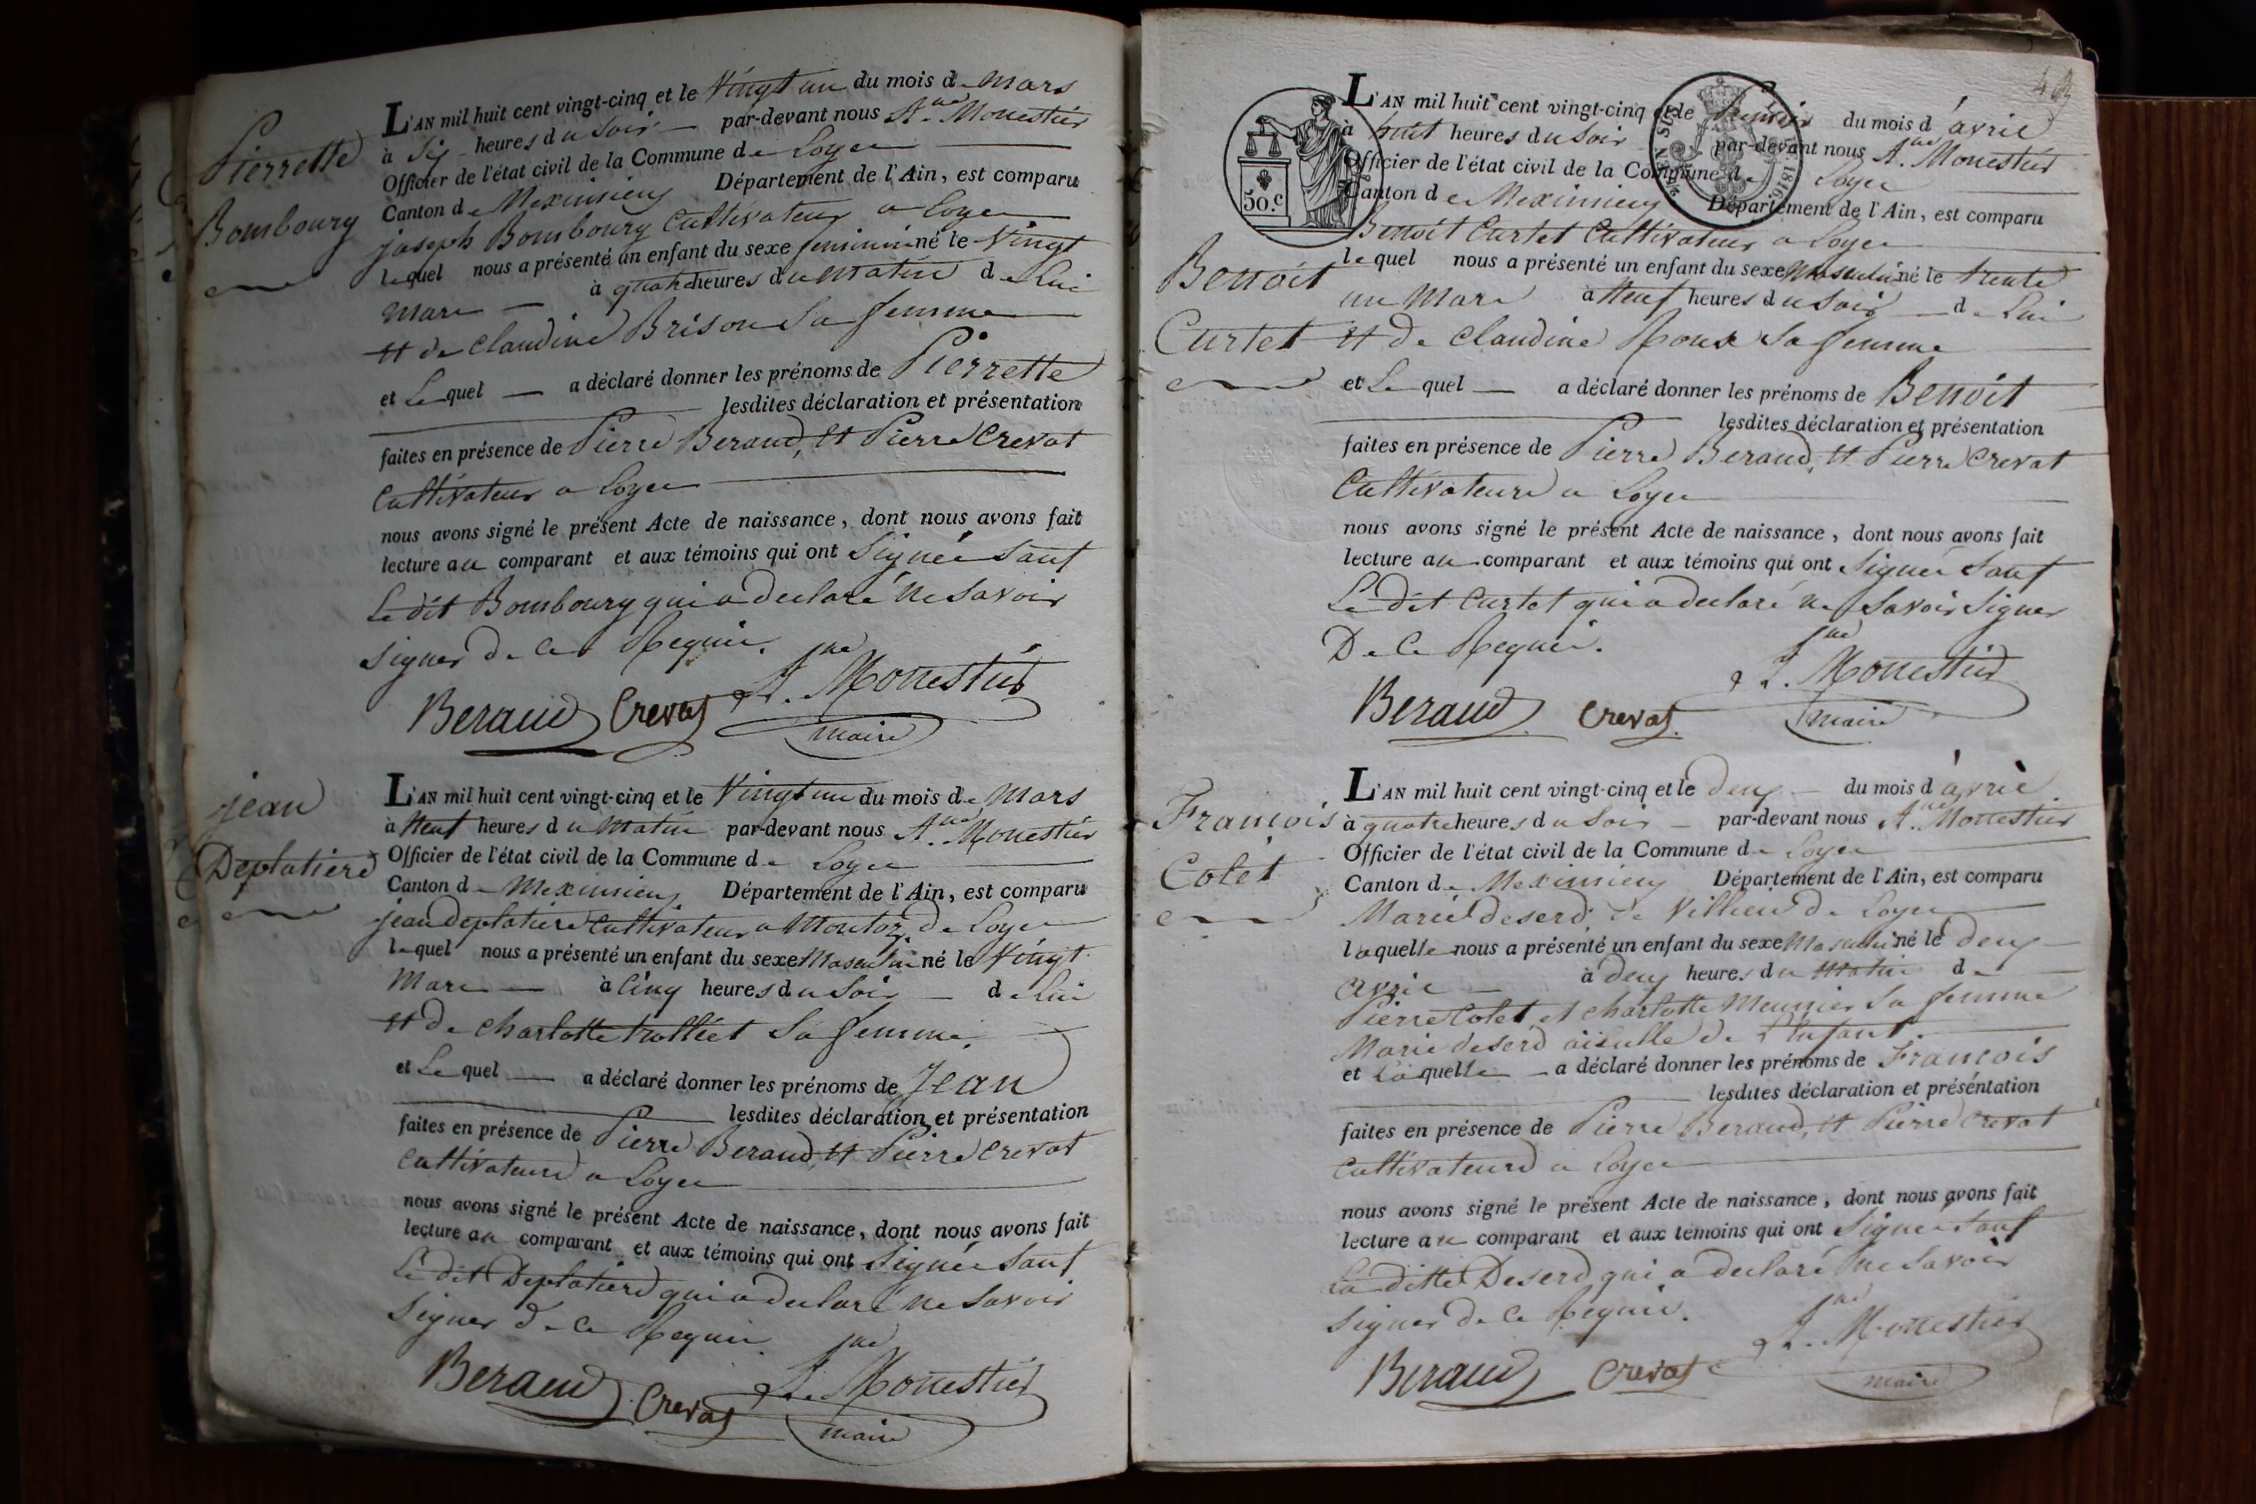 Pierrette
Bombourg
L'AN mil huit cent vingt-cinq et le Vingt un du mois de Mars
à Six heures du Soir par-devant nous A.ne Monestier
Officier de l'état civil de la Commune de Loyer
Canton de Meximieux Département de l'Ain, est comparu
joseph Bombourg Cultivateur a Loyer
lequel nous a présenté un enfant du sexe feminin né le Vingt
Mars à quatre heures du Matin de Lui
et de Claudine Brison Sa femme
et Le quel a déclaré donner les prénoms de Pierrette
lesdites déclaration et présentation
faites en présence de Pierre Beraud, et Pierre Crevat
Cultivateurs a Loyer
nous avons signé le présent Acte de naissance, dont nous avons fait
lecture au comparant et aux témoins qui ont Signée Sauf
Le dit Bombourg qui a declaré ne Savoir
signer de ce Requis.
Beraud Crevat A.ne Monestier
maire
jean
Deplatiere
L'AN mil huit cent vingt-cinq et le Vingt un du mois de Mars
à Neuf heures du Matin par-devant nous A.ne Monestier
Officier de l'état civil de la Commune de Loyer
Canton de Meximieux Département de l'Ain, est comparu
jean deplatiere Cultivateur a Monto de Loyer
lequel nous a présenté un enfant du sexe Masculin né le Vingt
Mars à Cinq heures du Soir de Lui
et de Charlotte Sa femme.
et Le quel a déclaré donner les prénoms de Jean
lesdites déclaration et présentation
faites en présence de Pierre Beraud, et Pierre Crevat
Cultivateurs a Loyer
nous avons signé le présent Acte de naissance, dont nous avons fait
lecture au comparant et aux témoins qui ont Signée Sauf
Le dit Deplatiere qui a declaré ne Savoir
Signer de ce Requis.
Beraud Crevat A.ne Monestier
maire
50.c
1816.
Benoit
Curtet
L'AN mil huit cent vingt-cinq et le Premier du mois d'avril
à huit heures du Soir par-devant nous A.ne Monestier
Officier de l'état civil de la Commune de Loyer
Canton de Meximieux Département de l'Ain, est comparu
Benoit Curtet Cultivateur a Loyer
lequel nous a présenté un enfant du sexe Masculin né le trente
un Mars à Neuf heures du Soir de Lui
et de Claudine Roux Sa femme
et Le quel a déclaré donner les prénoms de Benoit
lesdites déclaration et présentation
faites en présence de Pierre Beraud, et Pierre Crevat
Cultivateurs a Loyer
nous avons signé le présent Acte de naissance, dont nous avons fait
lecture au comparant et aux témoins qui ont Signée Sauf
Le dit Curtet qui a declaré ne Savoir Signer
De ce Requis.
Beraud Crevat A.ne Monestier
maire
François
Colet
L'AN mil huit cent vingt-cinq et le deux du mois d'avril
à quatre heures du Soir par-devant nous A.ne Monestier
Officier de l'état civil de la Commune de Loyer
Canton de Meximieux Département de l'Ain, est comparu
Marie deserd de Villieu de Loyer
laquelle nous a présenté un enfant du sexe Masculin né le deux
avril à deux heures du Matin de
Pierre Colet et charlotte Meunier Sa femme
Marie deserd aieulle de l'enfant.
et La quelle a déclaré donner les prénoms de François
lesdites déclaration et présentation
faites en présence de Pierre Beraud, et Pierre Crevat
Cultivateurs a Loyer
nous avons signé le présent Acte de naissance, dont nous avons fait
lecture au comparant et aux témoins qui ont Signée Sauf
La ditte Deserd qui a declaré ne Savoir
signer de ce Requis.
Beraud Crevat A.ne Monestier
maire